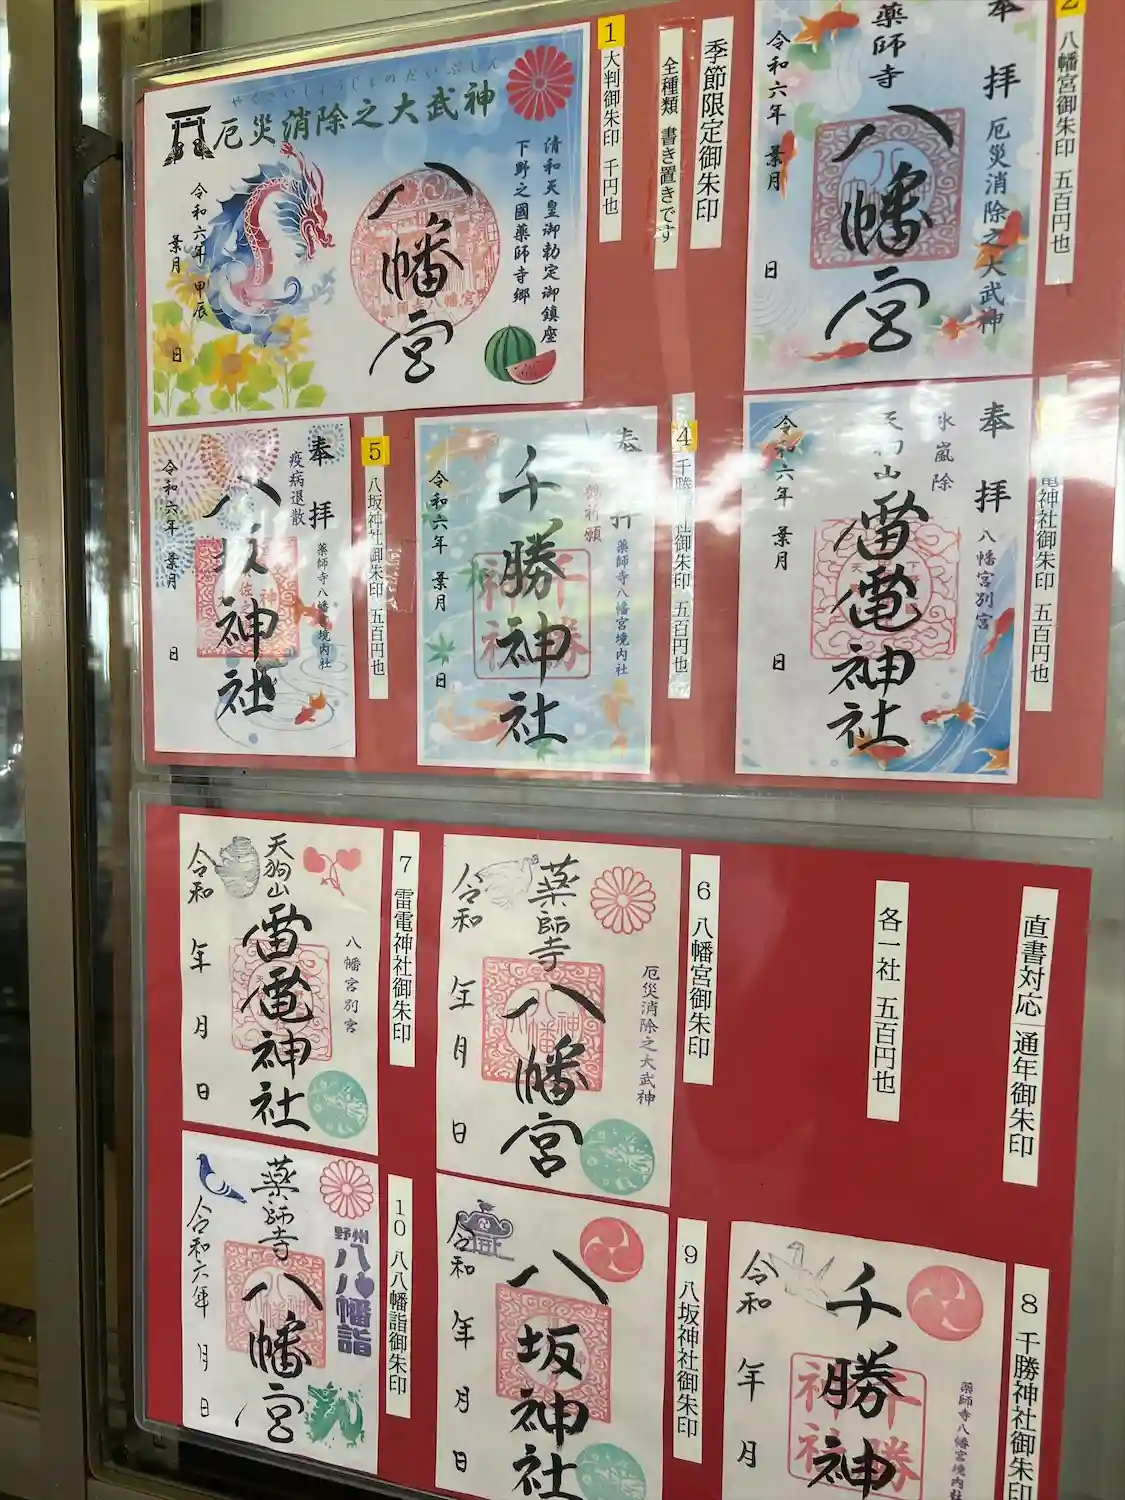 季節限定御朱印
全種類 書き置きです
1
大判御朱印 千円也
やくさいしょうじょのだいぶしん
厄災消除之大武神
清和天皇御勅定御鎮座
下野之國薬師寺郷
八幡宮
令和六年 甲辰
葉月 日
2
八幡宮御朱印 五百円也
奉拝
厄災消除之大武神
薬師寺
八幡宮
令和六年 葉月 日
電神社御朱印 五百円也
奉拝
八幡宮別宮
氷嵐除
雷電神社
令和六年 葉月 日
4
千勝神社御朱印 五百円也
奉拝
薬師寺八幡宮境内社
千勝神社
令和六年 葉月 日
5
八坂神社御朱印 五百円也
奉拝
疫病退散
薬師寺八幡宮境内社
八坂神社
令和六年 葉月 日
直書対応 通年御朱印
各一社 五百円也
6 八幡宮御朱印
厄災消除之大武神
薬師寺
八幡宮
令和 年 月 日
7 雷電神社御朱印
八幡宮別宮
天狗山
雷電神社
令和 年 月 日
8 千勝神社御朱印
薬師寺八幡宮境内社
千勝神
令和 年 月
9 八坂神社御朱印
八坂神社
令和 年 月 日
10 八八幡詣御朱印
野州
八八幡詣
薬師寺
八幡宮
令和六年 月 日